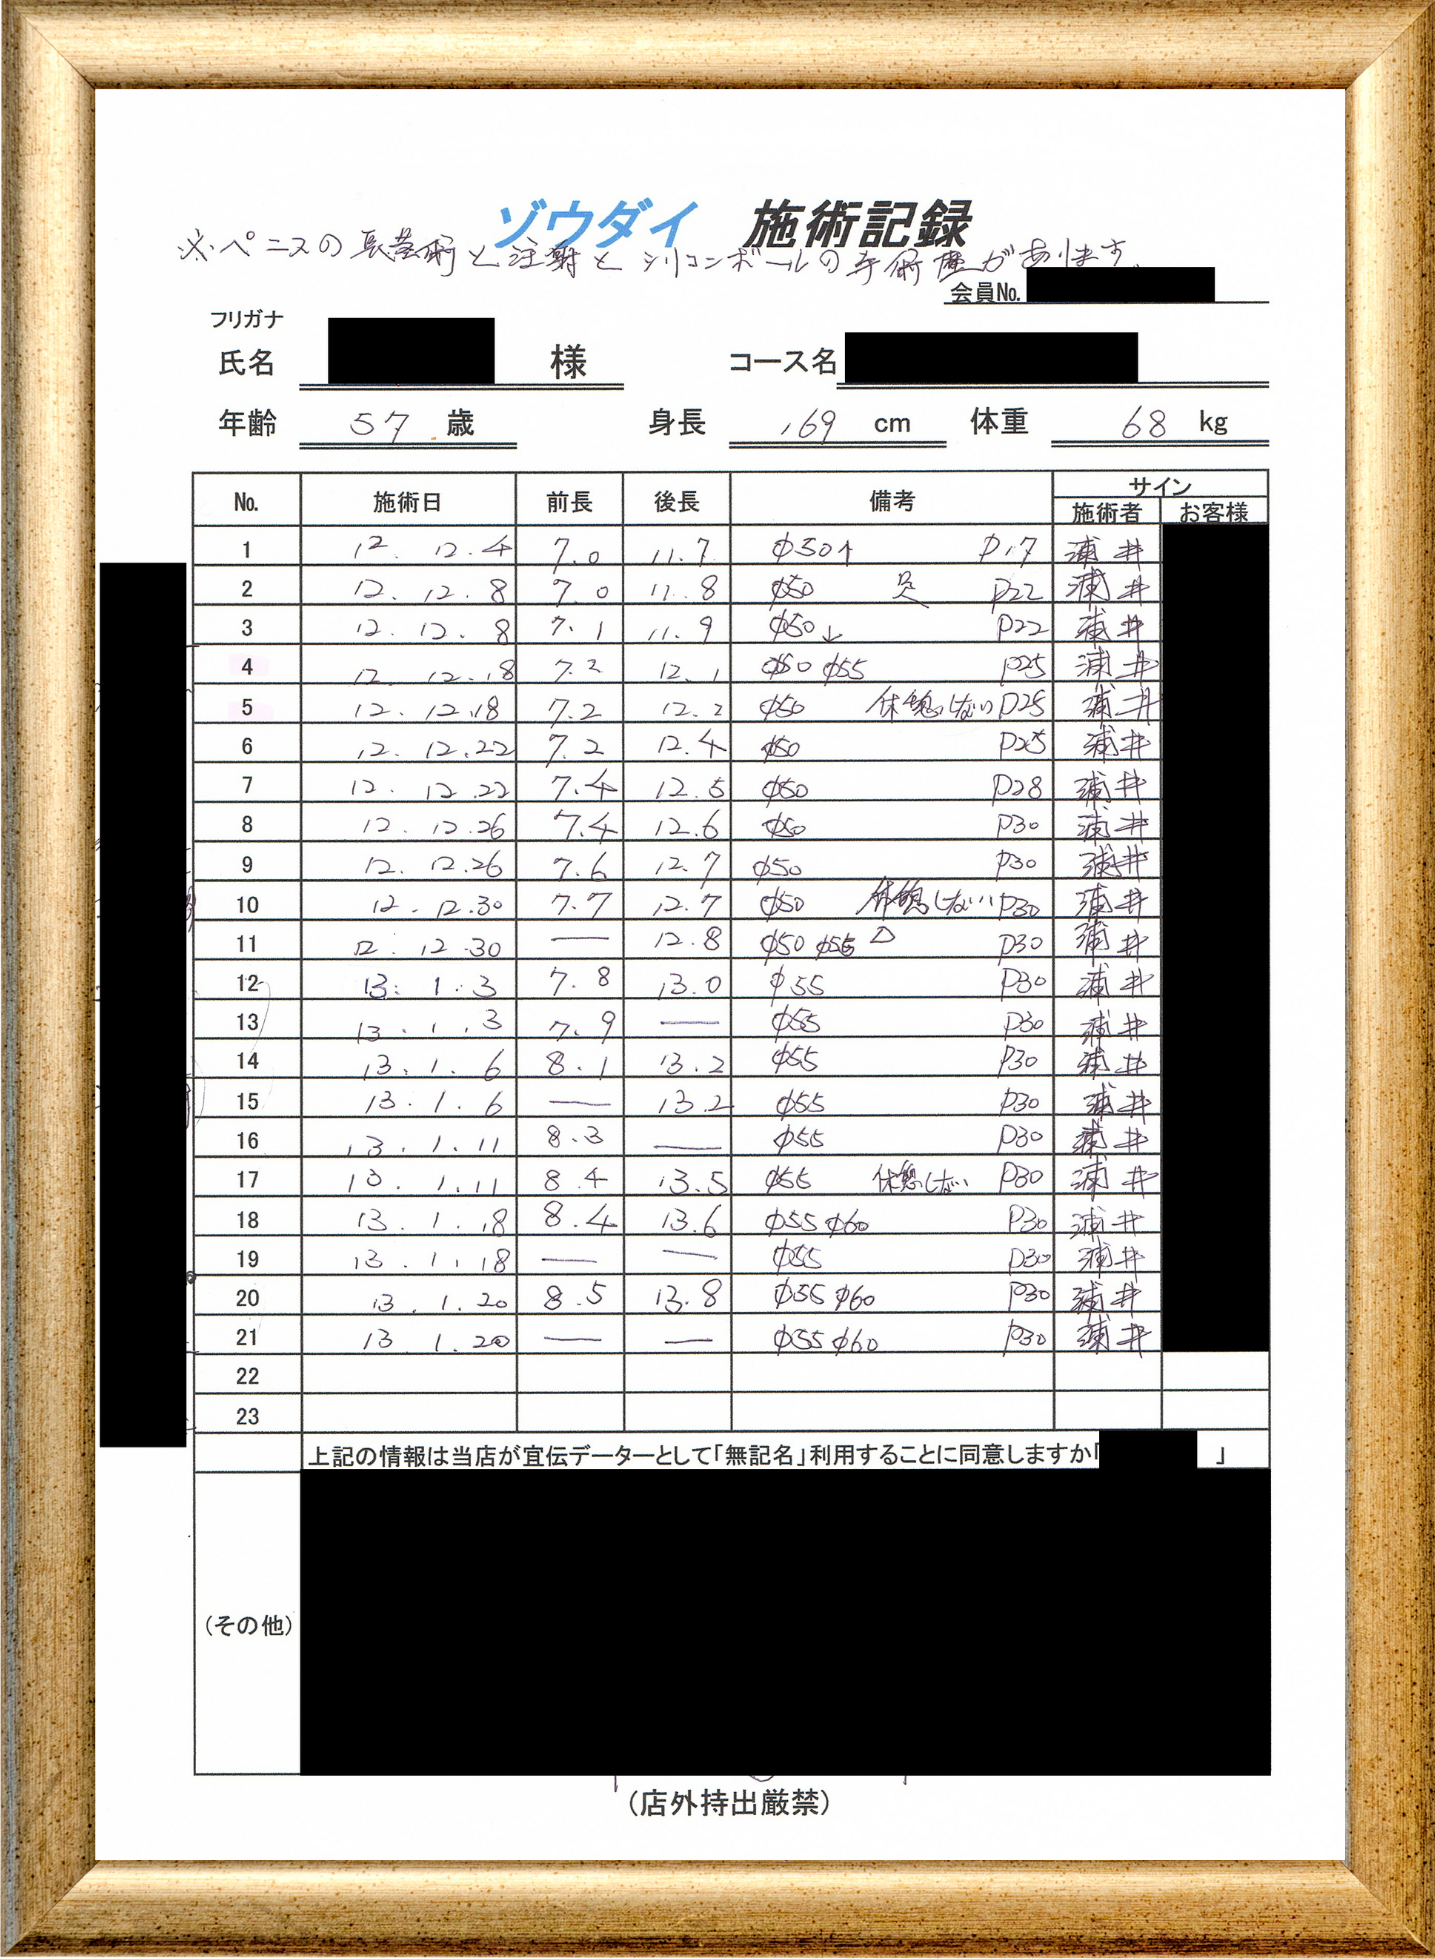 ゾウダイ 施術記録
※ペニスの長茎術と注射とシリコンボールの手術歴があります。
会員No.
フリガナ
氏名 様 コース名
年齢 57 歳 身長 169 cm 体重 68 kg
No. 施術日 前長 後長 備考 サイン
施術者 お客様
1 12. 12.4 7.0 11.7 φ50↑ P17 浦井
2 12. 12.8 7.0 11.8 φ50 P22 浦井
3 12. 12.8 7.1 11.9 φ50↓ P22 浦井
4 12. 12.18 7.2 12.1 φ50 φ55 P25 浦井
5 12. 12.18 7.2 12.2 φ50 休憩しない P25 浦井
6 12. 12.22 7.2 12.4 φ50 P25 浦井
7 12. 12.22 7.4 12.5 φ50 P28 浦井
8 12. 12.26 7.4 12.6 φ50 P30 浦井
9 12. 12.26 7.6 12.7 φ50 P30 浦井
10 12. 12.30 7.7 12.7 φ50 休憩しない P30 浦井
11 12. 12.30 — 12.8 φ50 φ55 △ P30 浦井
12 13. 1. 3 7.8 13.0 φ55 P30 浦井
13 13. 1. 3 7.9 — φ55 P30 浦井
14 13. 1. 6 8.1 13.2 φ55 P30 浦井
15 13. 1. 6 — 13.2 φ55 P30 浦井
16 13. 1.11 8.3 — φ55 P30 浦井
17 13. 1.11 8.4 13.5 φ55 休憩しない P30 浦井
18 13. 1.18 8.4 13.6 φ55 φ60 P30 浦井
19 13. 1.18 — — φ55 P30 浦井
20 13. 1.20 8.5 13.8 φ55 φ60 P30 浦井
21 13 1.20 — — φ55 φ60 P30 浦井
22
23
上記の情報は当店が宣伝データーとして「無記名」利用することに同意しますか「 」
(その他)
(店外持出厳禁)